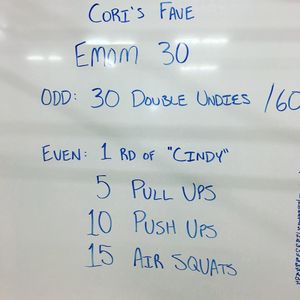 CORI'S FAVE
EMOM 30
ODD: 30 DOUBLE UNDIES /60
EVEN: 1 RD OF "CINDY"
5 PULL UPS
10 PUSH UPS
15 AIR SQUATS